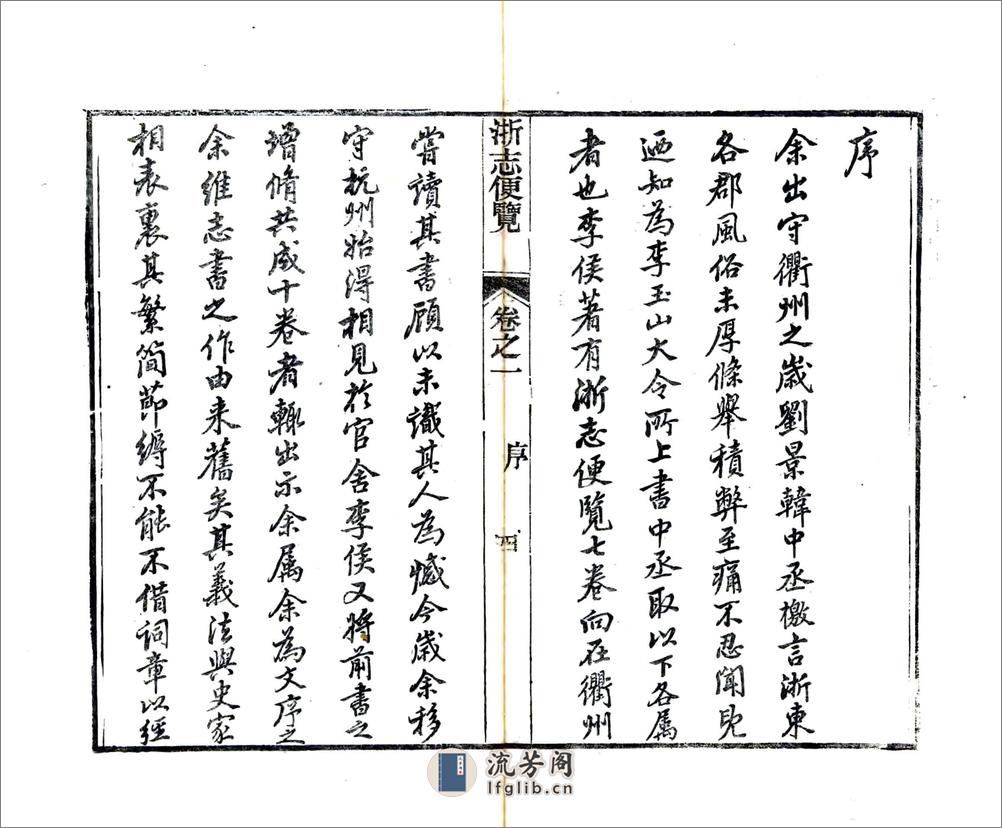 序
余出守衢州之歲劉景韓中丞檄言浙東
各郡風俗未厚條舉積弊至痛不忍聞見
迺知為李玉山大令所上書中丞取以下各属
者也李侯著有浙志便覽七卷向在衢州
浙志便覽
卷之一
序
四
嘗讀其書顧以未識其人為憾今歲余移
守杭州始得相見於官舍李侯又將前書之
增脩共成十卷者輙出示余属余為文序之
余維志書之作由来舊矣其義法與史家
相表裏其繁簡節縟不能不借詞章以經
流芳阁
lfglib.cn